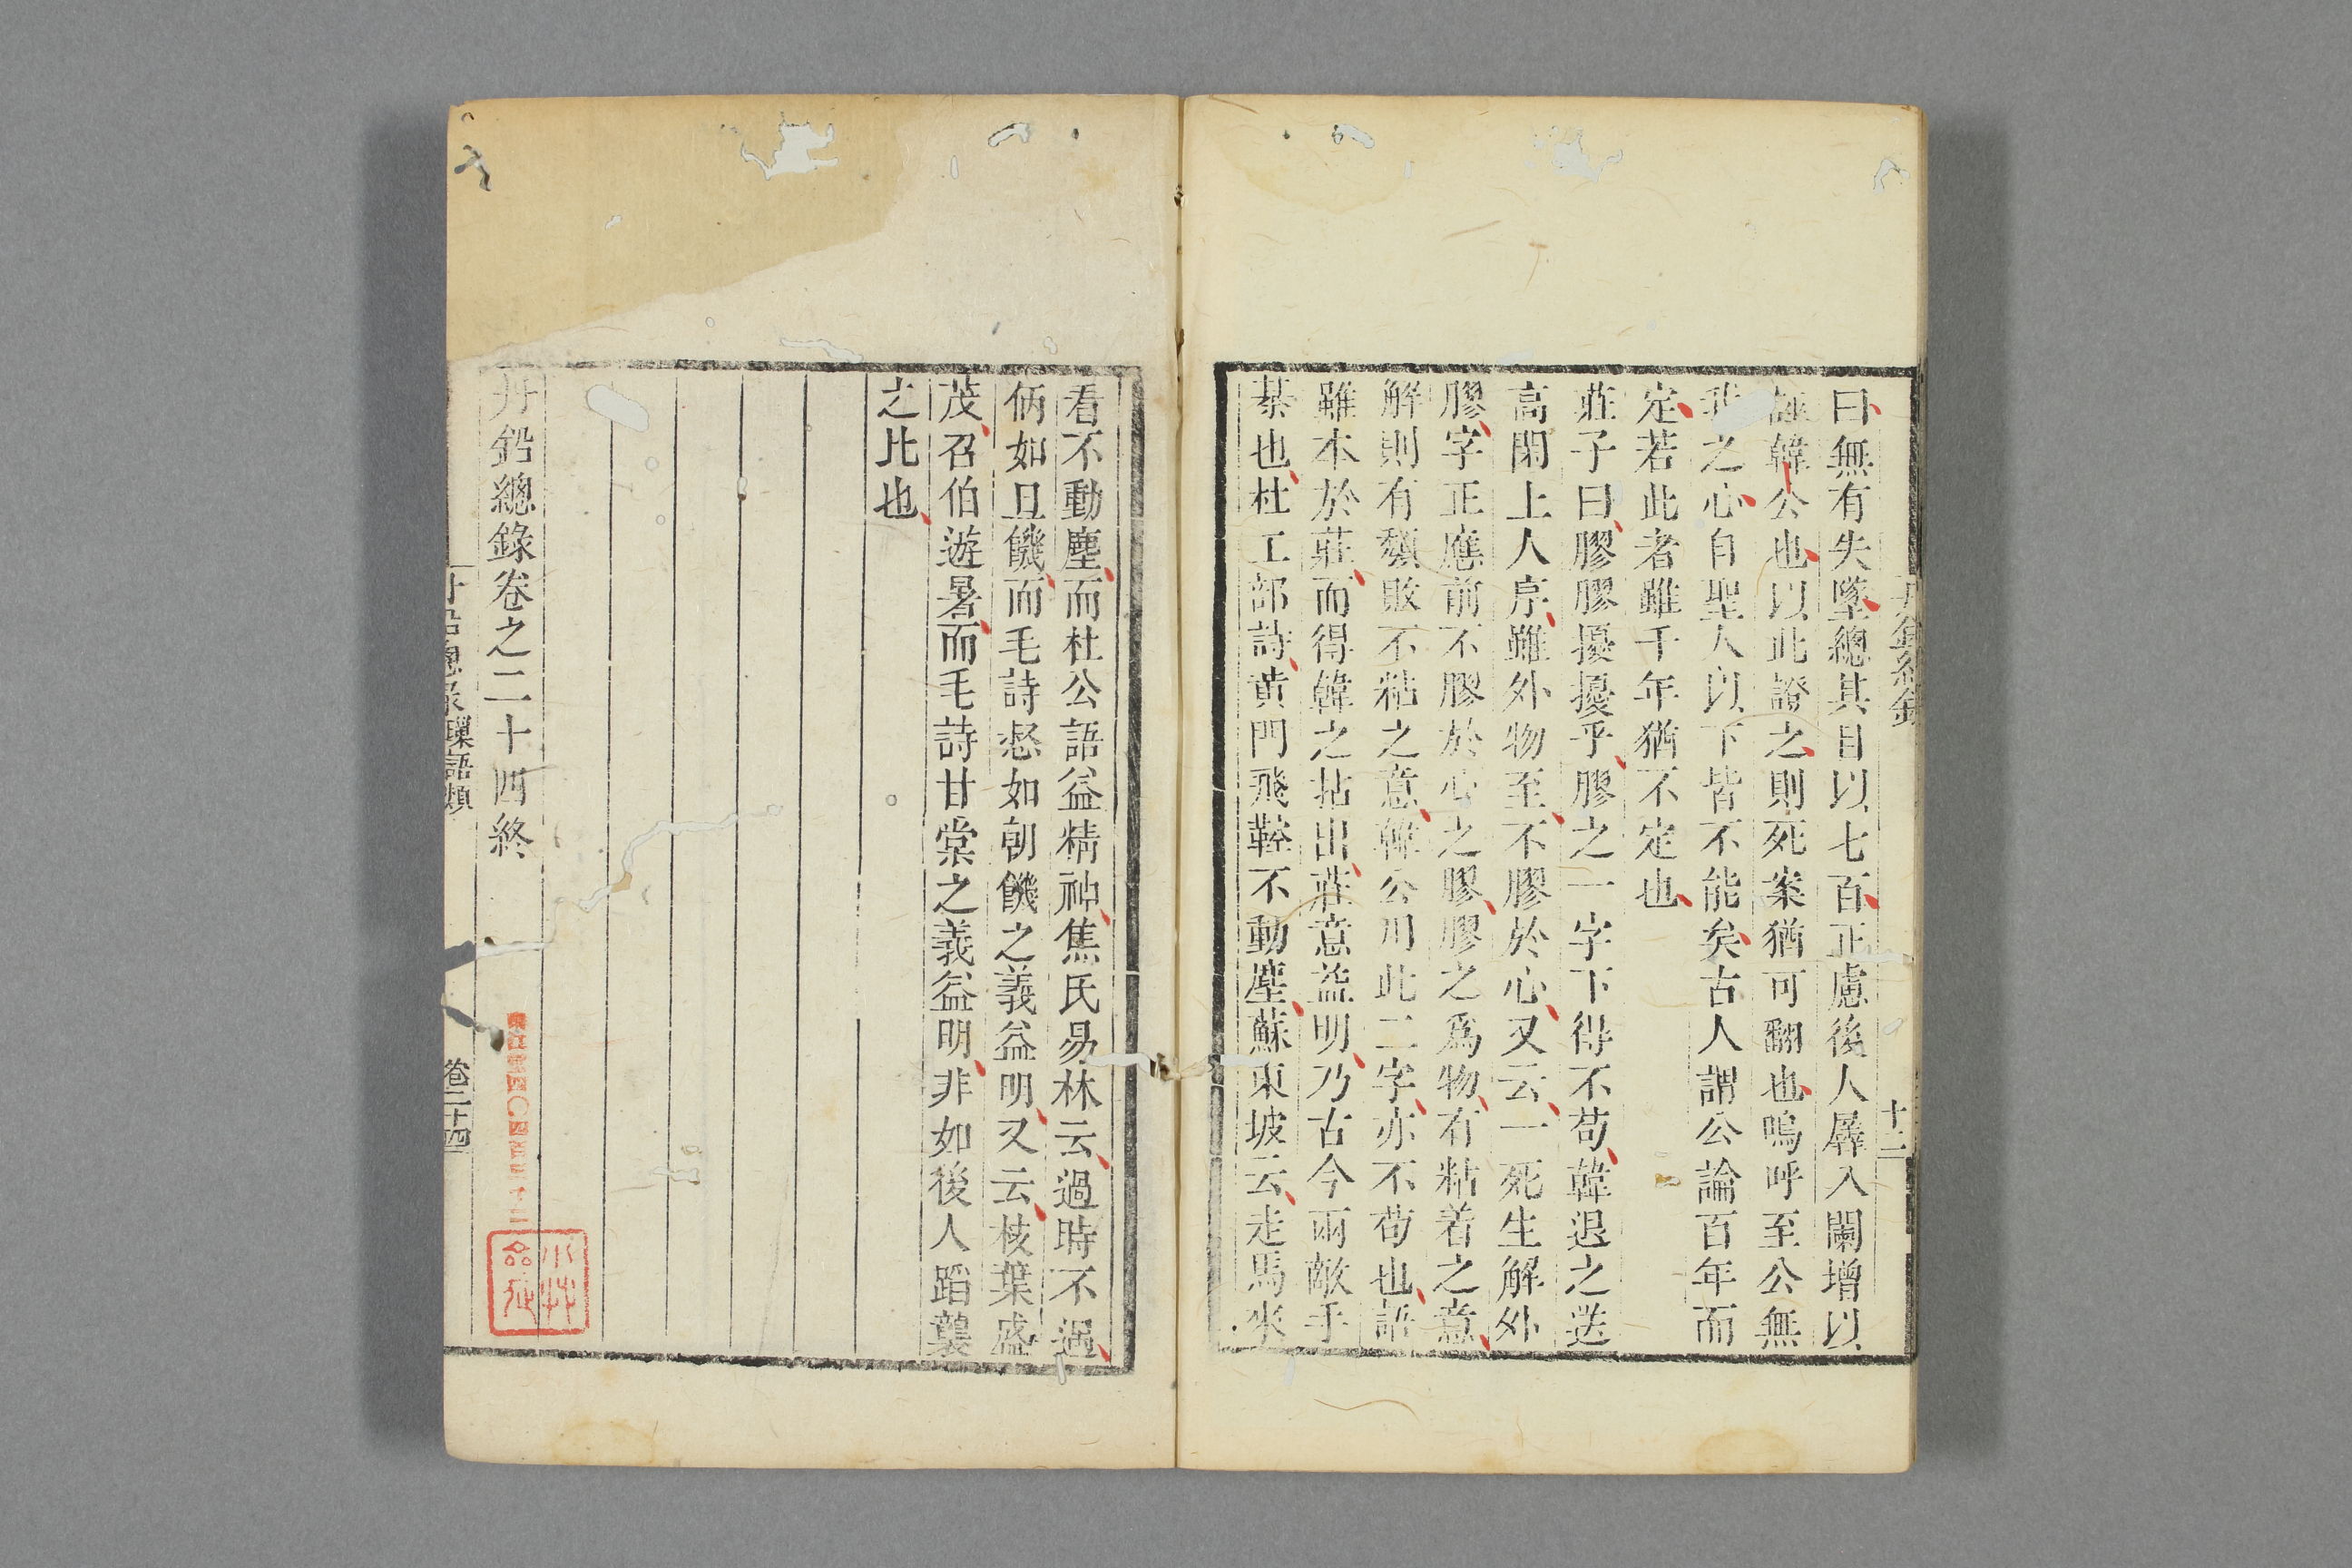 曰無有失墜總其目以七百正慮後人孱入闌增以
誣韓公也以此證之則死案猶可翻也嗚呼至公無
我之心自聖人以下皆不能矣古人謂公論百年而
定若此者雖千年猶不定也
莊子曰膠膠擾擾乎膠之一字下得不苟韓退之送
高閑上人序雖外物至不膠於心又云一死生解外
膠字正應前不膠於心之膠膠之爲物有粘着之意
解則有頽敗不粘之意韓公用此二字亦不苟也語
雖本於莊而得韓之拈出莊意益明乃古今兩敵手
棊也杜工部詩黄門飛鞚不動塵蘇東坡云走馬來
十二
看不動塵而杜公語益精神焦氏易林云過時不遇
㑂如旦饑而毛詩惄如朝饑之義益明又云枝葉盛
茂召伯遊暑而毛詩甘棠之義益明非如後人蹈襲
之比也
丹鉛總錄卷之二十四終
丹鉛總录 璅語類 卷二十四